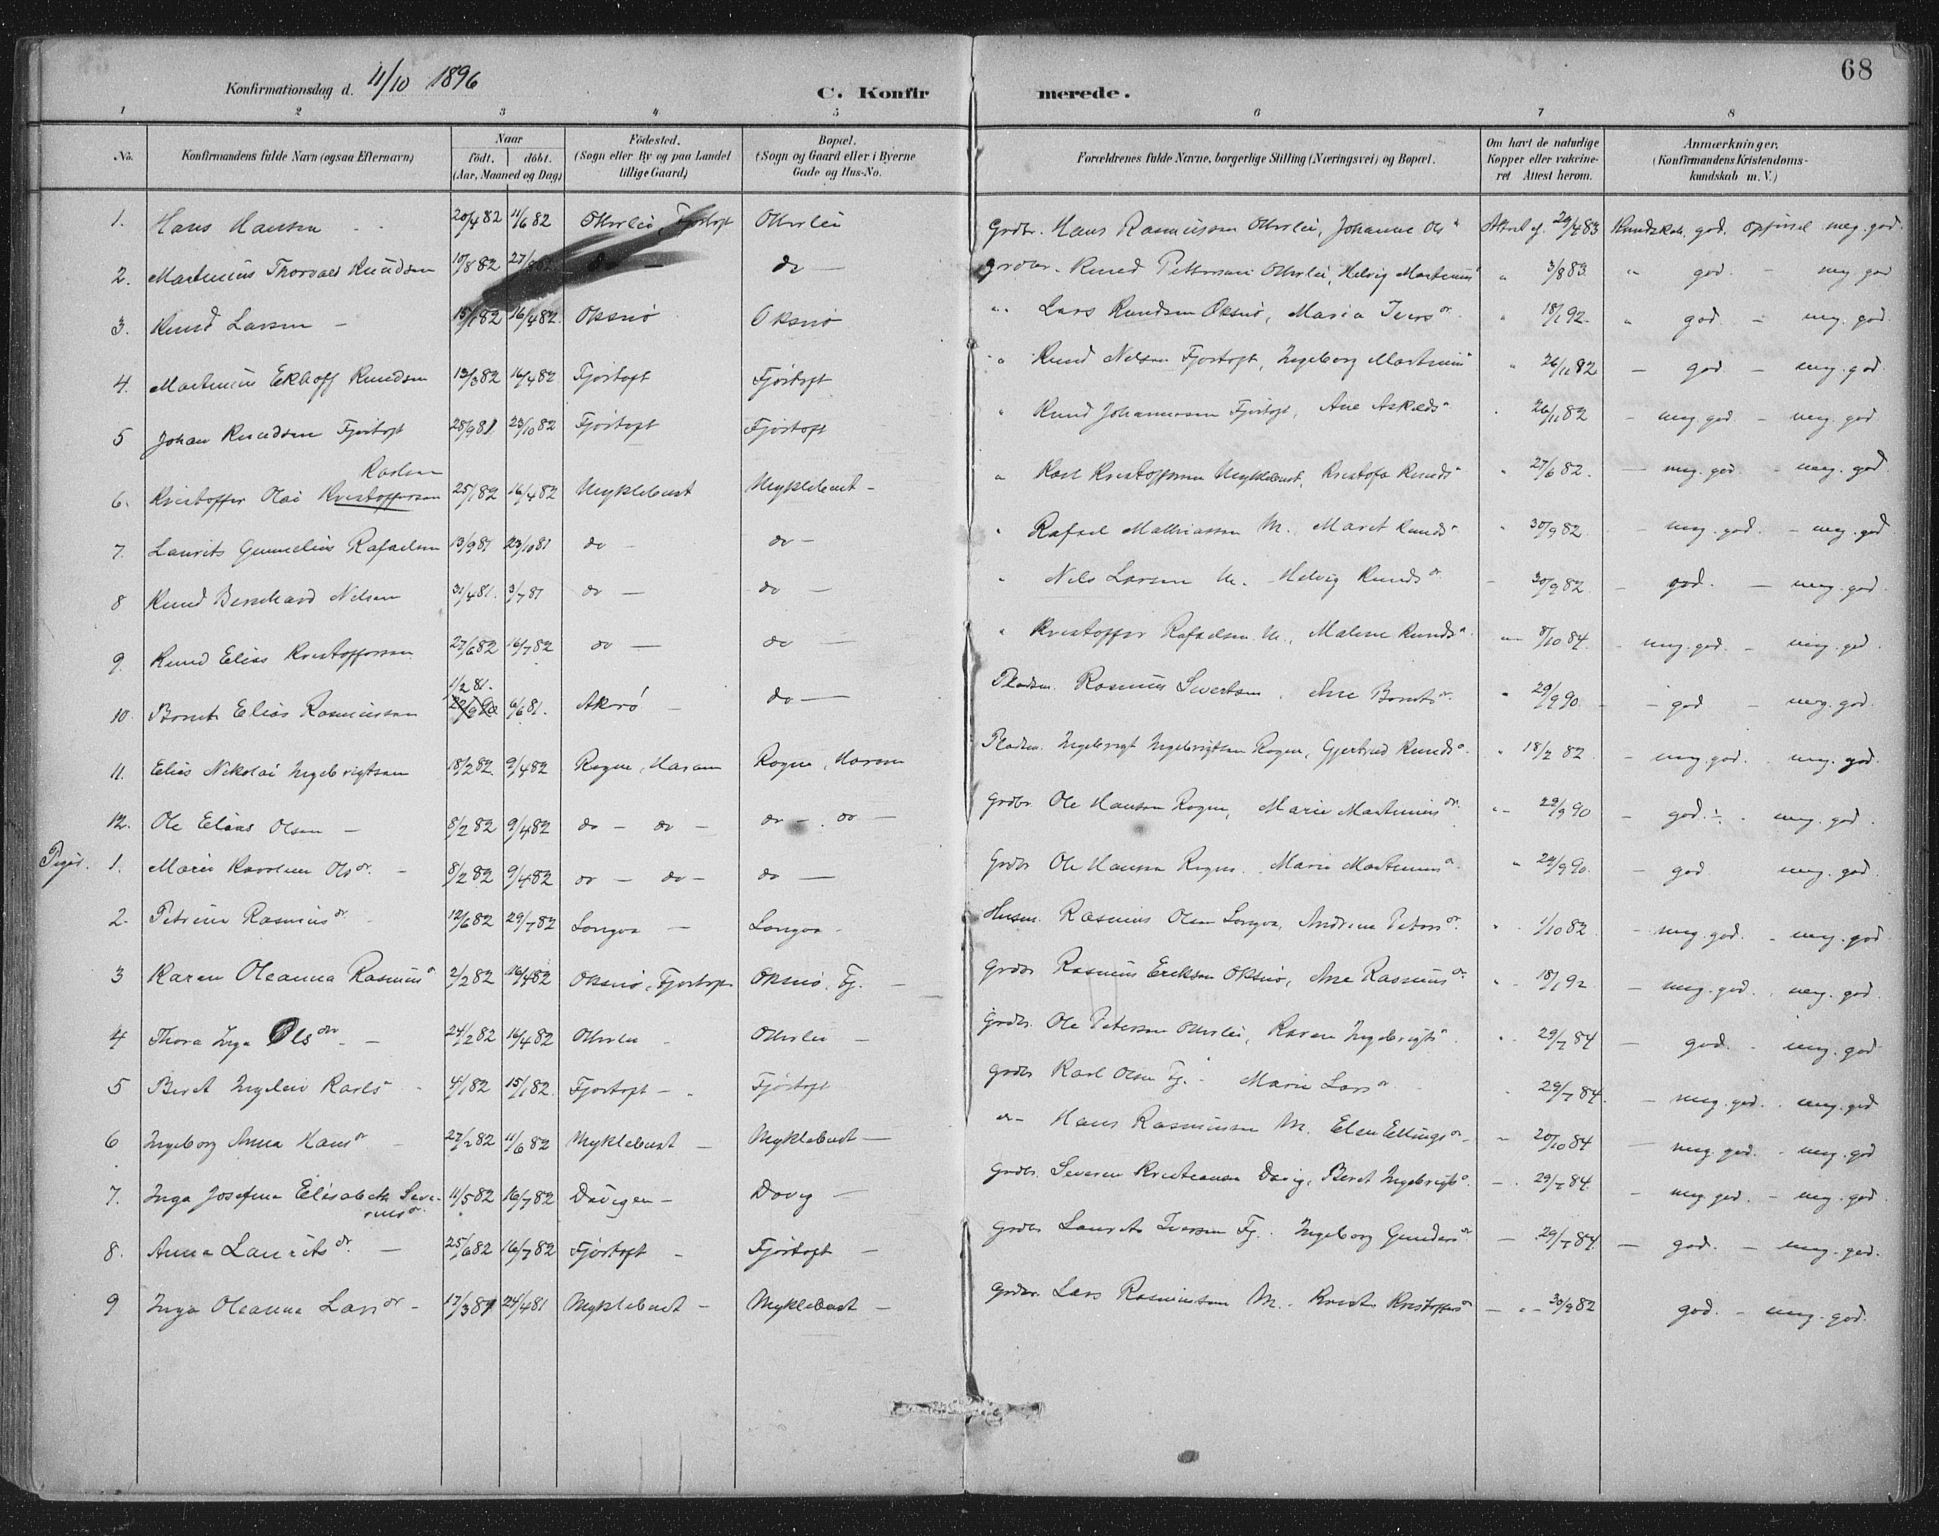 68
Konfirmationsdag d. 11/10 1896
C. Konfirmerede.
1 2 3 4 5 6 7 8
No. Konfirmandens fulde Navn (ogsaa Efternavn) Naar født. døbt. (Aar, Maaned og Dag) Fødested. (Sogn eller By og paa Landet tillige Gaard) Bopæl. (Sogn og Gaard eller i Byerne Gade og Hus-No. Forældrenes fulde Navne, borgerlige Stilling (Næringsvei) og Bopæl. Om havt de naturlige Kopper eller vakcineret Attest herom. Anmærkninger. (Konfirmandens Kristendomskundskab m. V.)
1. Hans Hansen 20/4 82 11/6 82 Otterlei, Fjortoft Otterlei Grdbr. Hans Rasmussen Otterlei, Johanne Ols" Attest af 29/4 83 Kundskab. god. opførsel meg. god.
2. Martinius Thorvald Knudsen 10/8 82 27/8 82 do do Grdbr. Knud Pettersen Otterlei, Helvig Martinus" " 3/8 83 " god - meg god
3. Knud Larsen 15/1 82 16/4 82. Oksnø Oksnø " Lars Knudsen Oksnø, Maria Ivers dr. " 18/1 92. " god - meg. god.
4. Martinius Ekhoff Knudsen 13/3 82 16/4 82 Fjørtoft Fjørtoft " Knud Nelsen Fjortoft, Ingeborg Martinius" " 26/11 82 - god - meg. god
5 Johan Knudsen Fjørtoft 28/9 81. 23/10 82 Fjørtoft Fjørtoft " Knud Johannesen Fjørtoft, Ane Asklds" " 26/11 82 - meg. god - meg. god
Karlsen
6. Kristoffer Olai Kristoffersen 25/1 82 16/4 82 Myklebust Myklebust - " Karl Kristoffersen Myklebust, Kristofa Knuds" 27/6 82. - meg. god - meg. god
7. Laurits Gunnelius Rafaelsen 13/9 81 23/10 81 do - do - " Rafael Mathiassen M. Maret Knuds" " 30/9 82 - meg. god. - meg. god
8 Knud Bernhard Nilsen 31/4 81. 3/7 81 do - do - " Nils Larsen M. Helvig Knuds dr - 30/9 82. - god. - meg. god
9. Knud Elias Kristoffersen 27/6 82 16/7 82 do - do - " Kristoffer Rafaelsen M., Malene Knuds" 8/10 84. - meg. god. - meg. god
1/2 81.
10. Bernt Elias Rasmussen 6/6 81. Akerø - do - Pladsm. Rasmus Sivertsen, Ane Bernts dr. " 29/9 90. - god - meg. god.
11. Elias Nikolai Ingebrigtsen 18/2 82. 9/4 82 Rogne, Haram Rogne, Haram Pladsm. Ingebrigt Ingebrigtsen Rogne, Gjertrud Knuds" " 18/2 82 - meg. god. - meg. god.
12. Ole Elias Olsen - 8/2 82 9/4 82 do - do - do - do - Grdbr Ole Hansen Rogne, Marie Martinius dr. " 29/9 90 - god ÷. meg. god.
Piger. 1. Marie Karoline Ols dr. - 8/2 82 9/4 82 do - do - do - Grdbr Ole Hansen Rogne. Marie Martinius" " 29/9 90. - god meg. god.
2. Petrine Rasmus dr. 12/6 82 29/7 82 Longva - Longva - Husm. Rasmus Olsen Longva, Andrine Peters dr. " 1/10 82 - meg. god. - meg. god
3 Karen Oleanna Rasmus" 2/2 82 16/4 82 Oksnø, Fjortoft Oksnø, Fj. - Grdbr Rasmus Eriksen Oksnø, Ane Rasmus dr. " 18/1 92 - meg. god. meg. god.
4 Thora Inga Ols dr. - 24/2 82 16/4 82 Otterlei - Otterlei - Grdbr. Ole Petersen Otterlei, Karen Ingebrigts" " 29/7 84 - god. - meg. god
5 Beret Ingelene Karls" 4/1 82 15/1 82. Fjortoft - Fjørtoft Grdbr Karl Olsen Fj. - Marie Lars dr 29/7 84. - meg. god. meg. god
6 Ingeborg Anna Hans dr 27/2 82 11/6 82 Myklebust - Myklebust - " - Hans Rasmussen M. Elen Ellings dr. " 20/10 84 - meg. god. - meg. god
7. Inga Josefine Elisabeth Seve- 11/5 82 16/7 82 Davigen - Davig - Grdbr. Severin Kristiansen Davig, Beret Ingebrigts" - 29/7 84. - meg. god. - meg. god
rins dr.
8. Anna Laurits dr. - 25/6 82 16/7 82 Fjørtoft - Fjørtoft - Grdbr Laurits Iversen Fj. Ingeborg Gunders dr - 29/7 84. - god. - meg. god.
9 Inga Oleanna Lars dr - 17/3 81 24/4 81 Myklebust - Myklebust - Grdbr. Lars Rasmussen M. Kristofa Kristoffers dr - " - 30/9 82 god - meg. god.